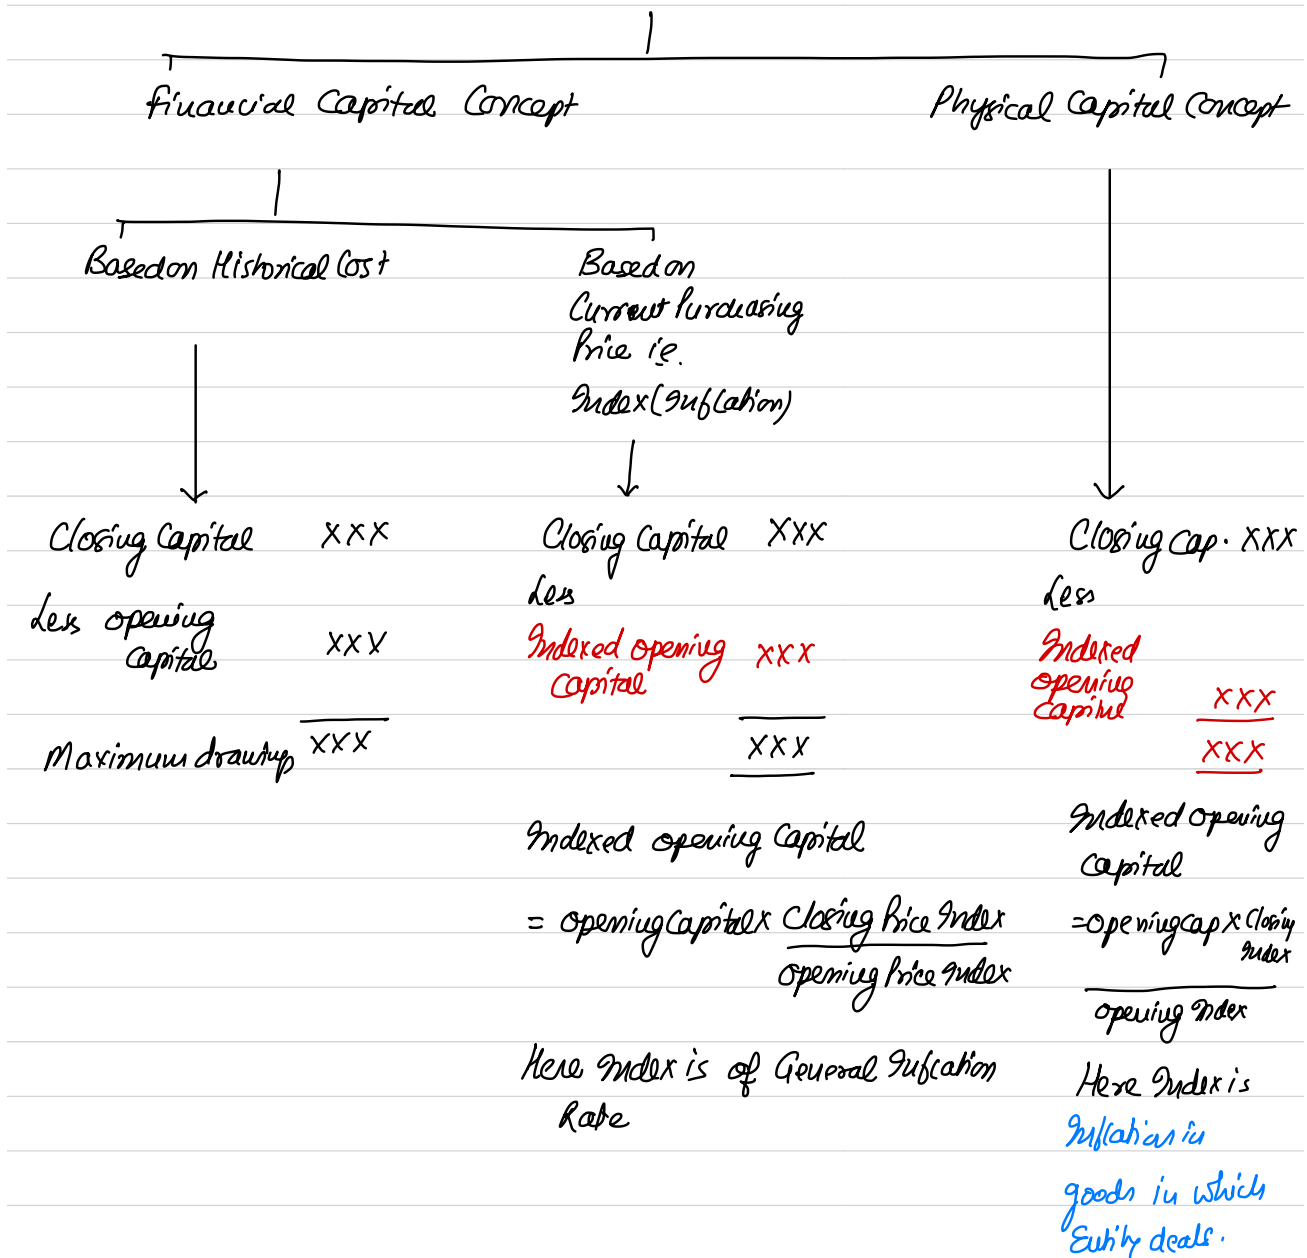 Financial Capital Concept
Physical Capital Concept
Based on Historical Cost
Based on
Current Purchasing
Price i.e.
Index (Inflation)
Closing Capital XXX
Less opening
Capital XXX
Maximum drawings XXX
Closing Capital XXX
Less
Indexed opening
Capital XXX
XXX
Indexed opening Capital
= opening Capital x Closing Price Index
opening Price Index
Here Index is of General Inflation
Rate
Closing Cap. XXX
Less
Indexed
opening
Capital XXX
XXX
Indexed opening
Capital
= opening cap x Closing
Index
opening Index
Here Index is
Inflation in
goods in which
Entity deals.